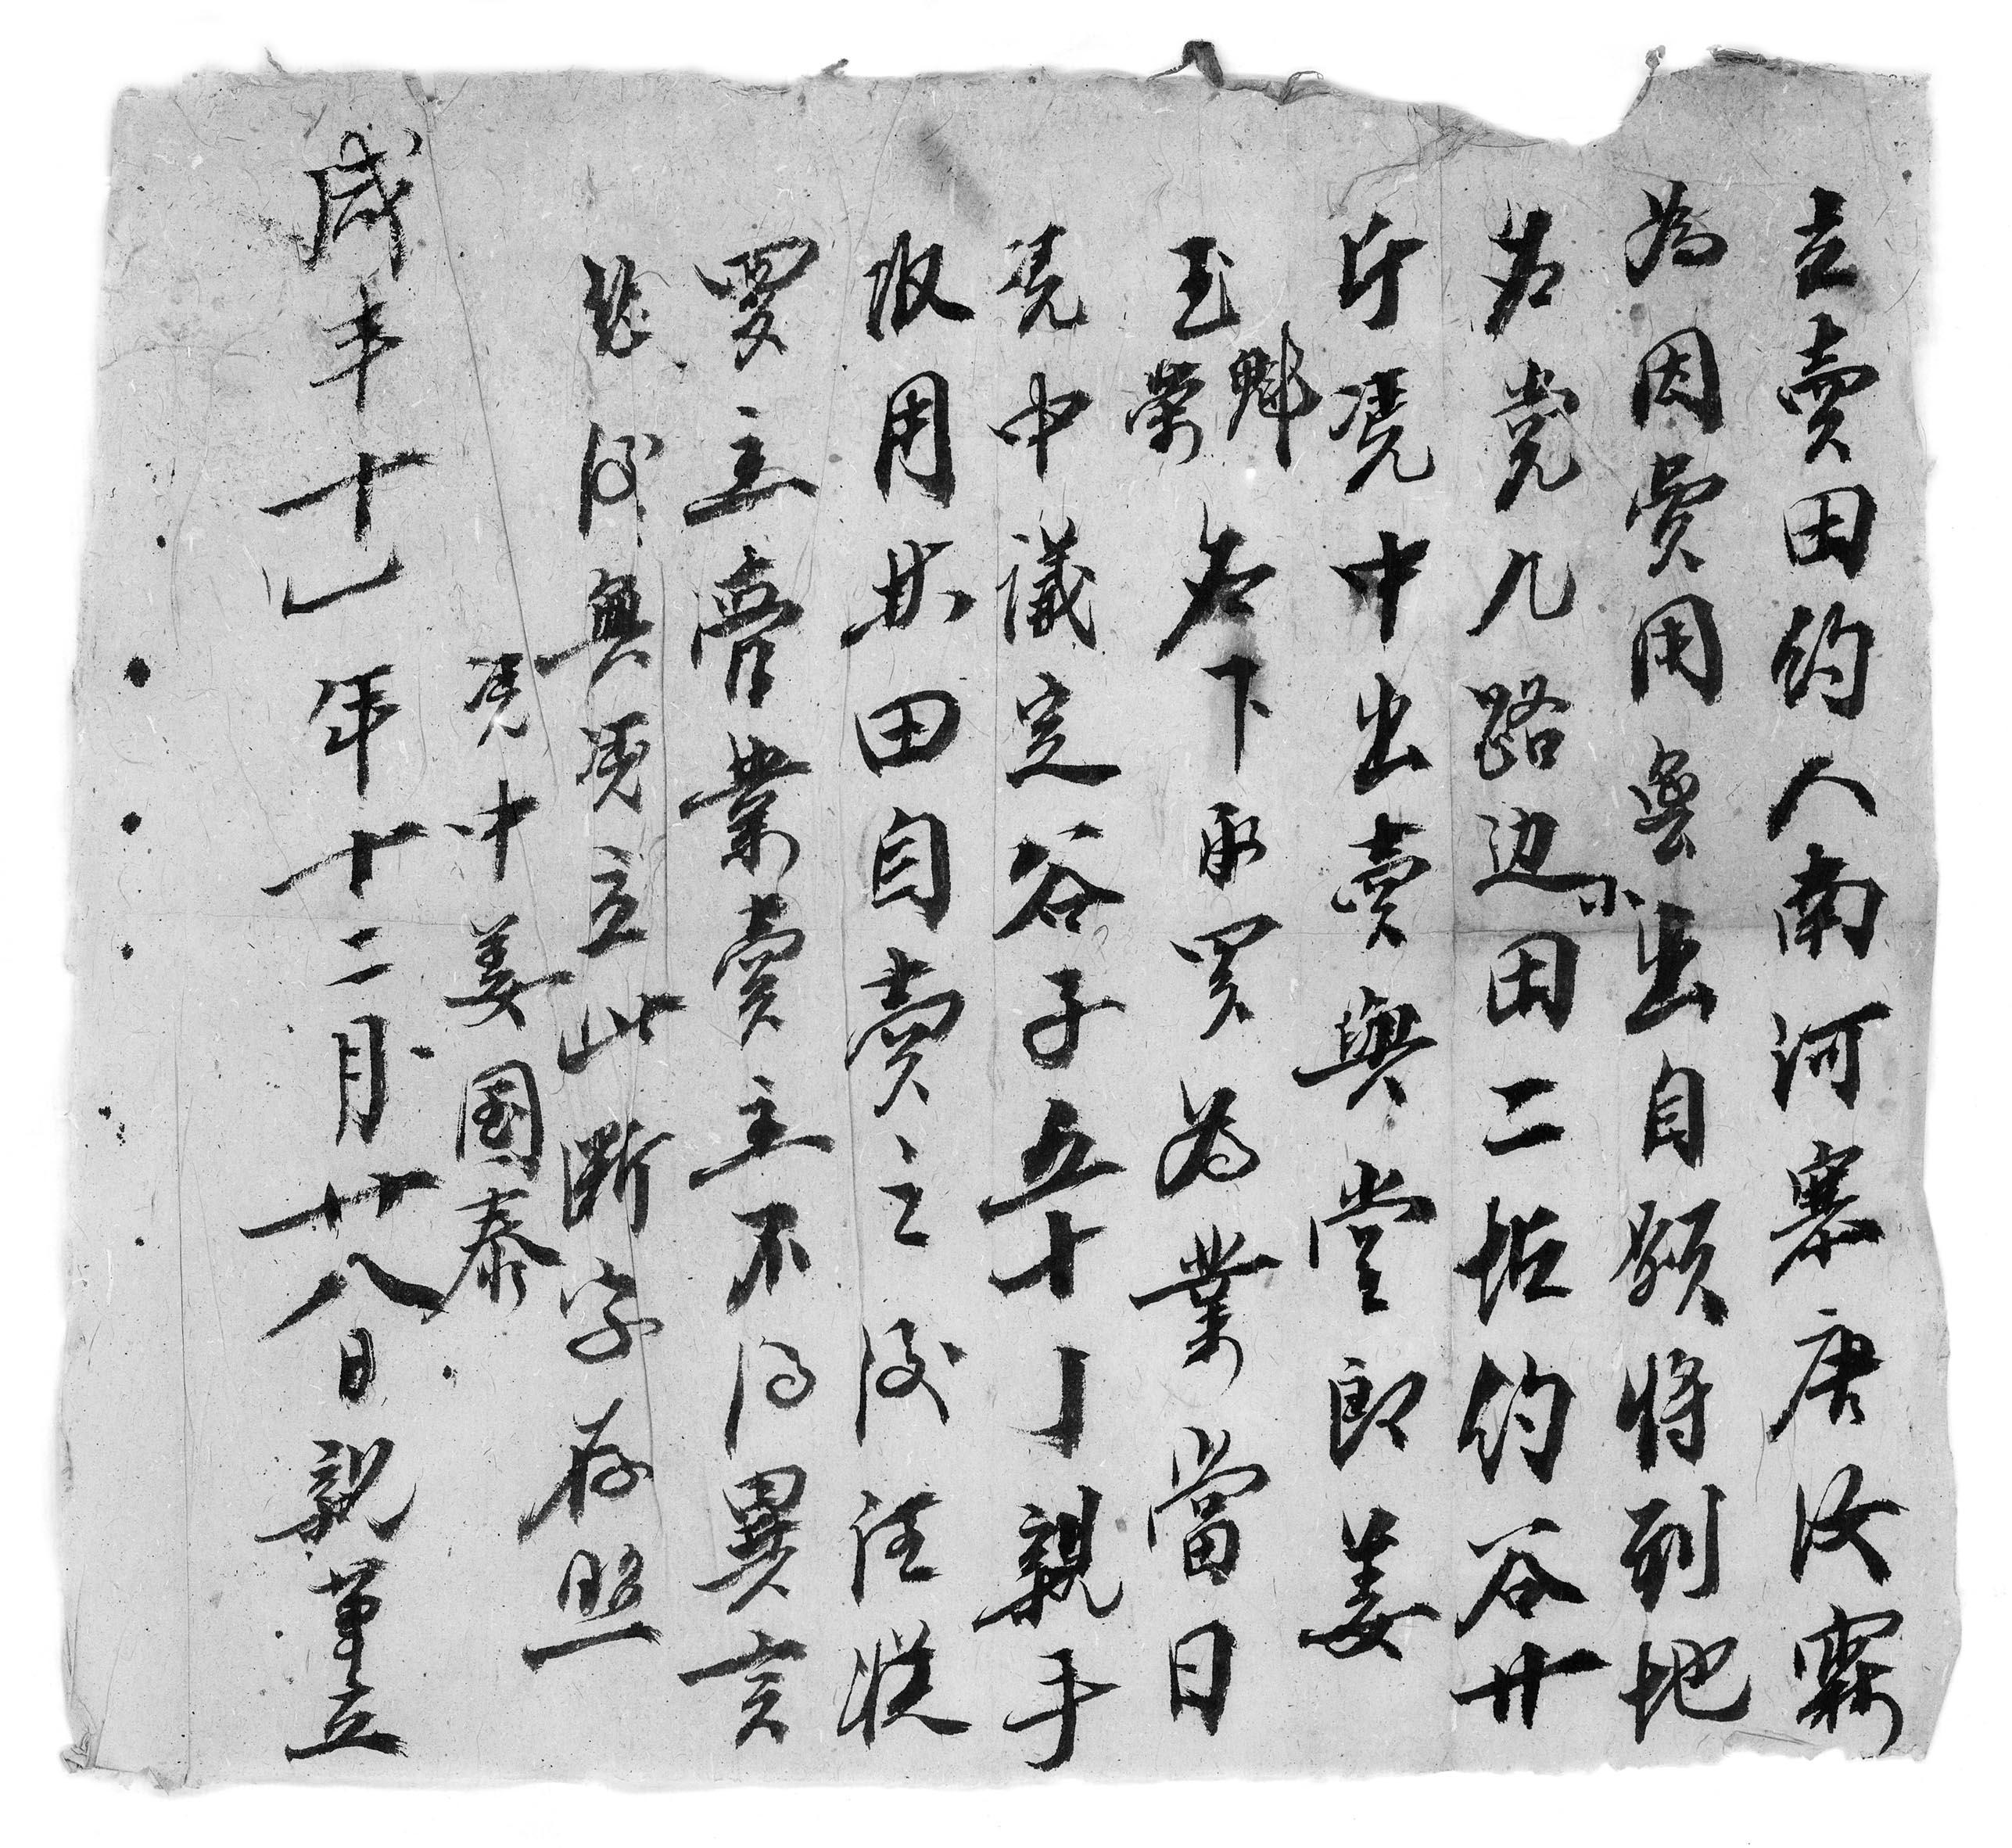 立賣田約人南河寨唐汝霖
為因費用無出自願將到地
名党九路边小田二坵約谷廿
斤凴中出賣與堂郎姜
玉魁榮名下承買為業當日
凴中議定谷子五十丁親手
收用其田自賣之後任從
買主管業賣主不得異言
恐後無凴立此斷字存照
凴中姜國泰
咸丰十一年十二月廿八日親筆立